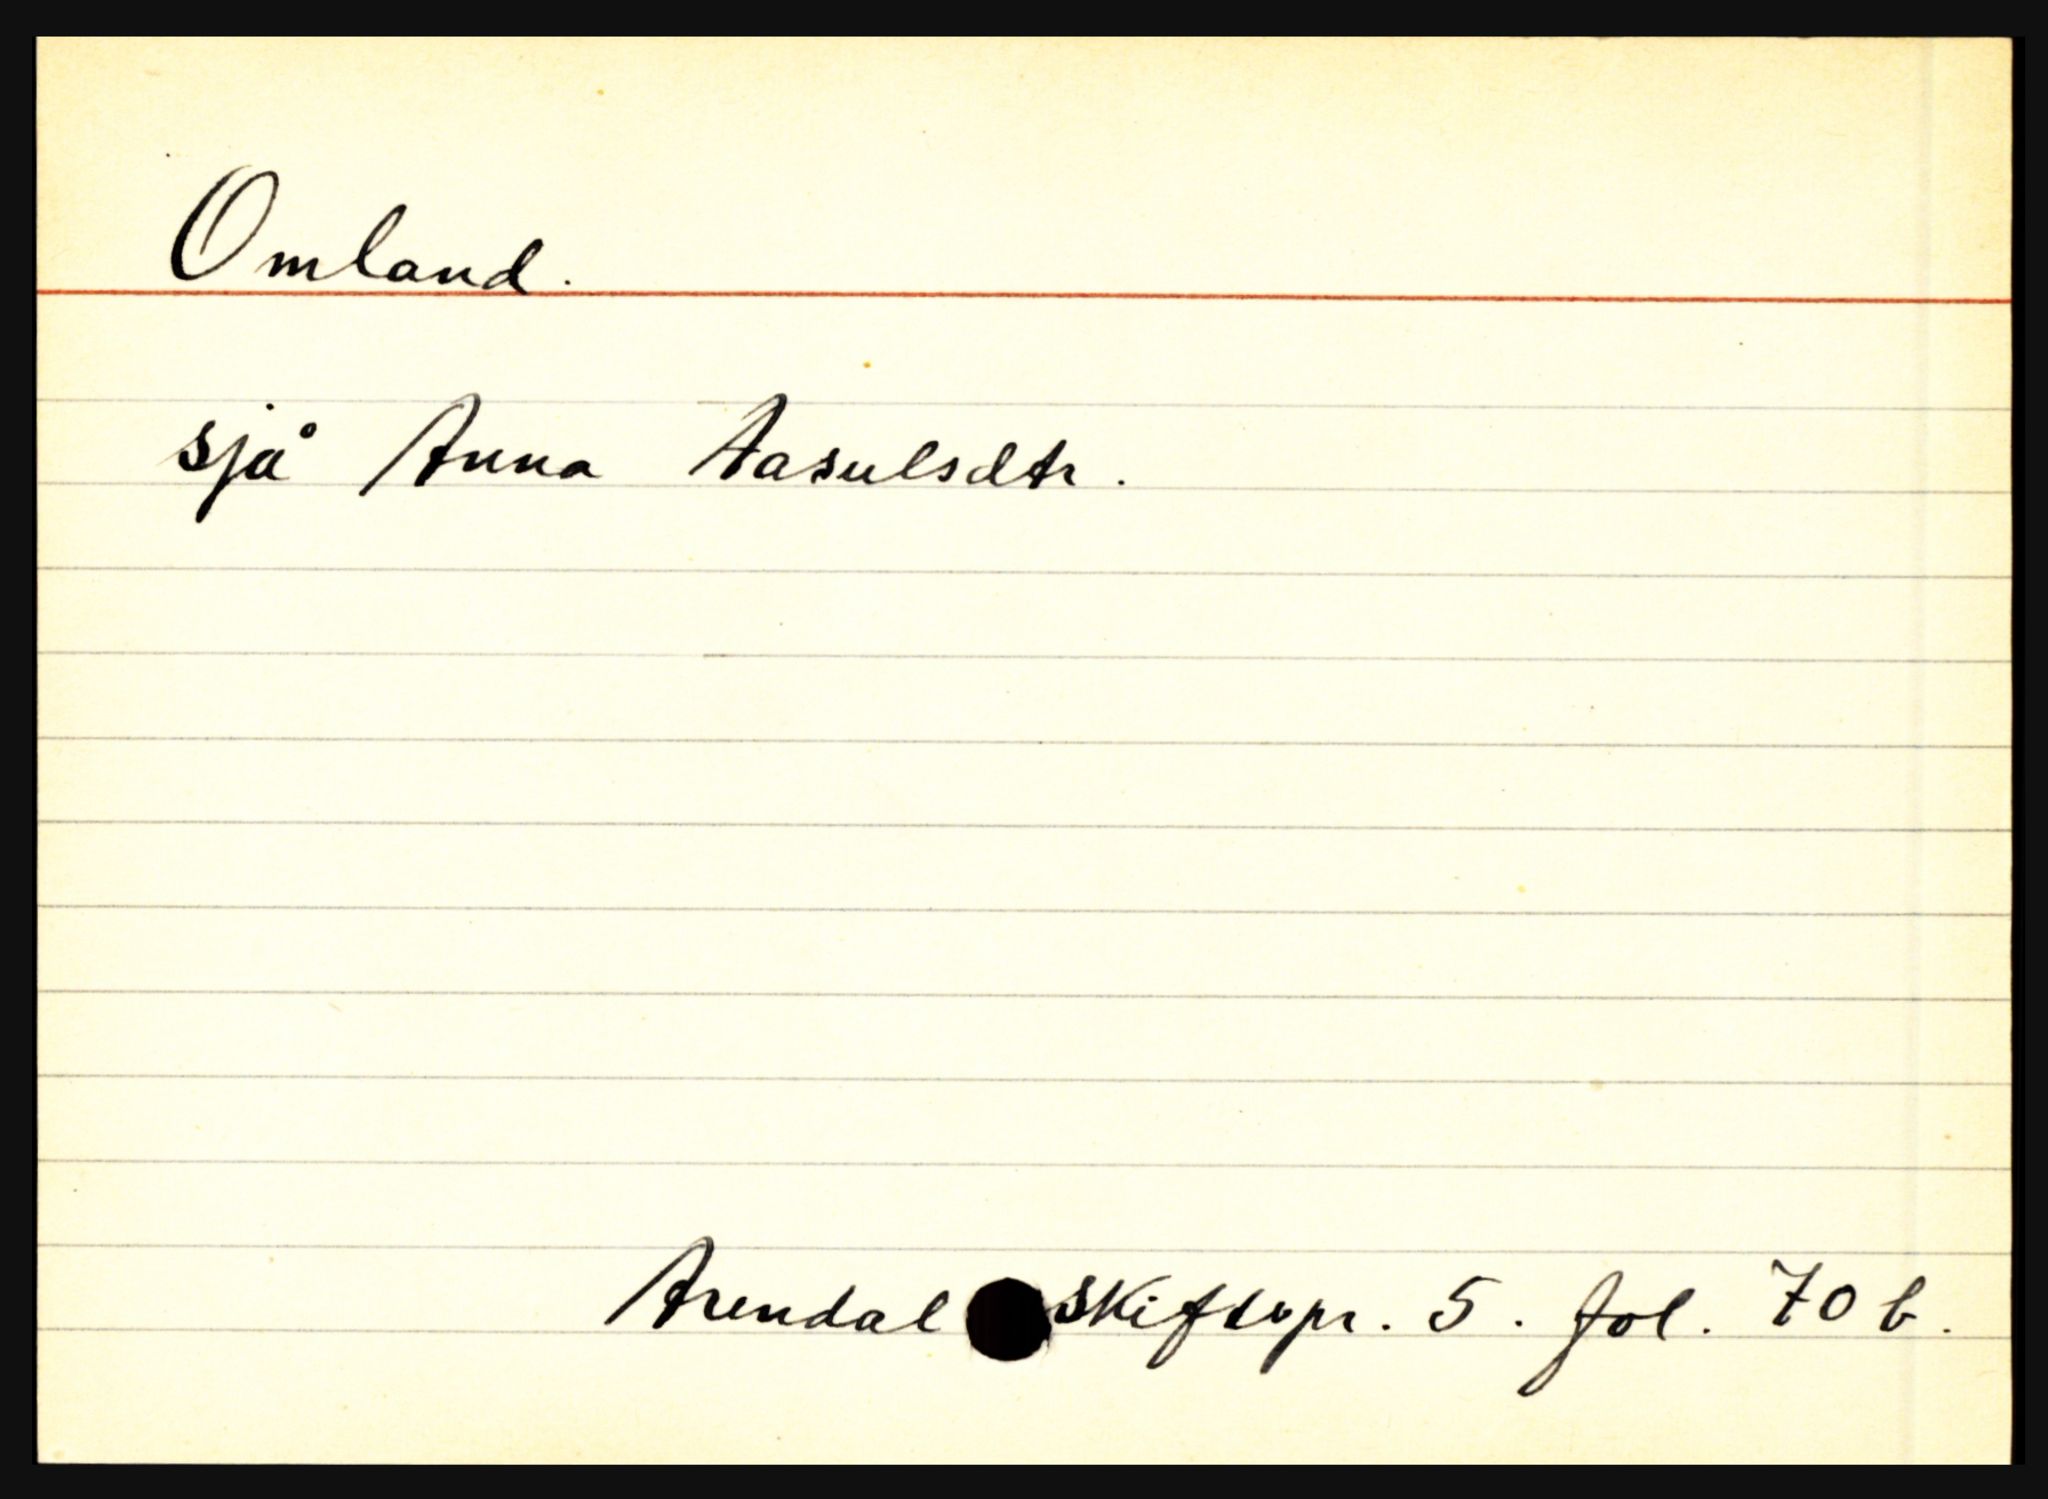 Omland.
sjå Anna Aasulsdtr.
Arendal skiftepr. 5. fol. 70 b.